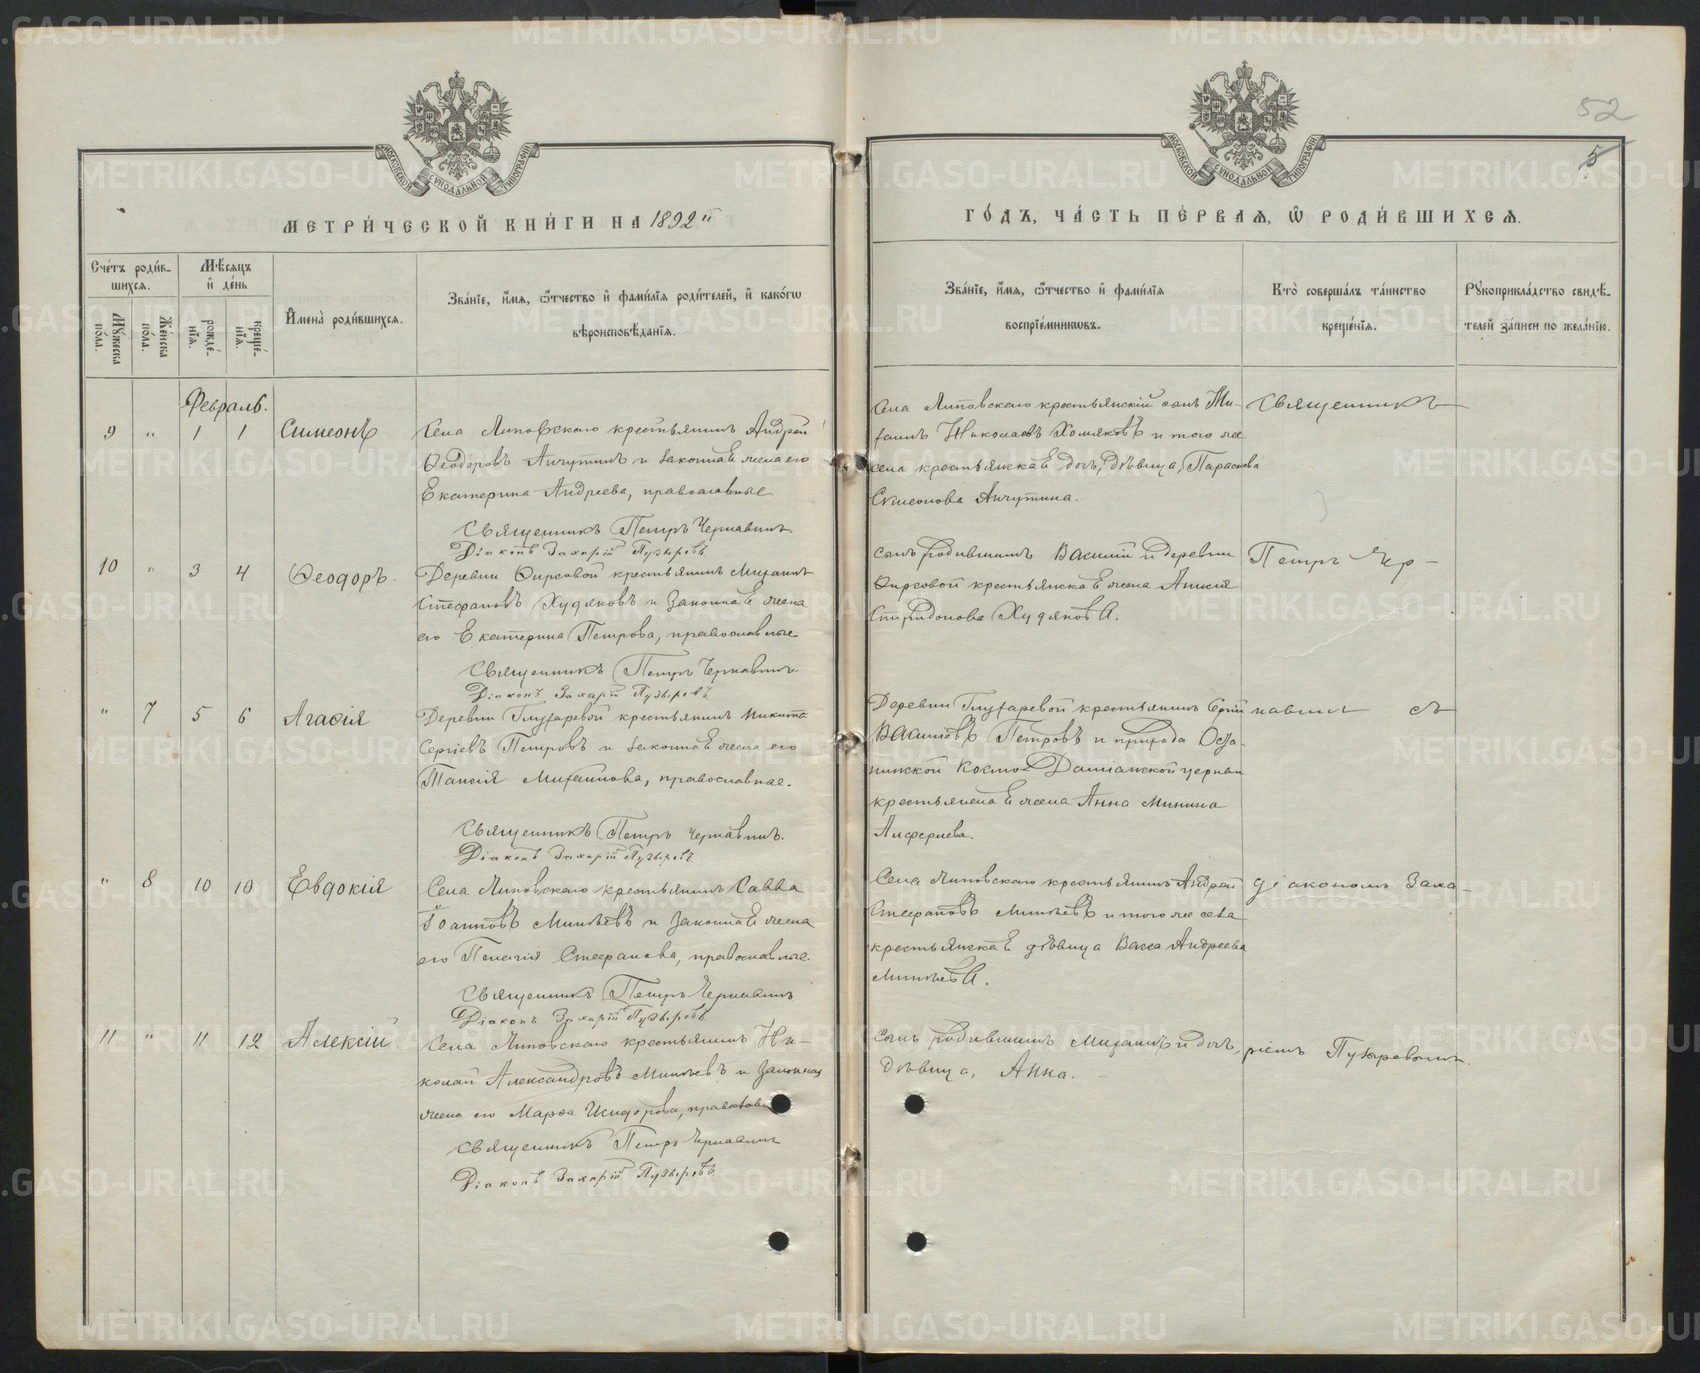 52
5
МОСКОВСКОЙ СѴНОДАЛЬНОЙ ТИПОГРАФІИ
МОСКОВСКОЙ СѴНОДАЛЬНОЙ ТИПОГРАФІИ
МЕТРИ́ЧЕСКОЙ КНИ́ГИ НА 1892
ГО́ДЪ, ЧА́СТЬ ПЕ́РВАЯ, Ѽ РОДИ́ВШИХСЯ.
Сче́тъ роди́в-
шихся.
Мѣ́сяцъ
и҆ де́нь
Мꙋ́жеска
по́ла.
Же́нска
по́ла.
рожде́-
нїя.
креще́-
нїя.
И҆мена̀ роди́вшихся.
Зва́нїе, и҆́мя, ѻ҆́тчество и҆ фами́лїя роди́телей, и҆ како́гѡ
вѣроисповѣ́данїя.
Зва́нїе, и҆́мя, ѻ҆́тчество и҆ фами́лїя
воспрїе́мникѡвъ.
Кто̀ соверша́лъ та́инство
креще́нїя.
Рꙋкоприкла́дство свидѣ́-
телей за́писи по жела́нїю.
Февраль.
9 " 1 1 Симеонъ
Села Липовскаго крестьянинъ Андрей
Ѳеодоровъ Анчутинъ и законная жена его
Екатерина Андреева, православные.
Священникъ Петръ Чернавинъ
Діаконъ Захарій Пузыревъ
Села Липовскаго крестьянскій сынъ Ми-
хаилъ Николаевъ Хомяковъ и того же
села крестьянская дочь, дѣвица, Параскева
Симеонова Анчутина.
Священникъ
10 " 3 4 Ѳеодоръ.
Деревни Фирсовой крестьянинъ Михаилъ
Стефановъ Худяковъ и законная жена
его Екатерина Петрова, православные
Священникъ Петръ Чернавинъ.
Діаконъ Захарій Пузыревъ
сынъ родившихъ Василій и деревни
Фирсовой крестьянская жена Анисія
Спиридонова Худякова.
Петръ Чер-
" 7 5 6 Агаѳія
Деревни Глухаревой крестьянинъ Никита
Сергіевъ Петровъ и законная жена его
Таисія Михаилова, православные.
Священникъ Петръ Чернавинъ.
Діаконъ Захарій Пузыревъ
Деревни Глухаревой крестьянинъ Сергій
Васильевъ Петровъ и прихода Оста-
нинской Космо-Даміанской церкви
крестьянская жена Анна Минина
Алферьева.
навинъ съ
" 8 10 10 Евдокія
Села Липовскаго крестьянинъ Савва
Іоанновъ Минѣевъ и законная жена
его Пелагія Стефанова, православные.
Священникъ Петръ Чернавинъ
Діаконъ Захарій Пузыревъ
Села Липовскаго крестьянинъ Андрей
Стефановъ Минѣевъ и того же села
крестьянская дѣвица Васса Андреева
Минѣева.
діакономъ Заха-
11 " 11 12 Алексій
Села Липовскаго крестьянинъ Ни-
колай Александровъ Минѣевъ и законная
жена его Марѳа Исидорова, православн
Священникъ Петръ Чернавинъ
Діаконъ Захарій Пузыревъ
сынъ родившихъ Михаилъ и дочь,
дѣвица, Анна.
ріемъ Пузыревымъ.